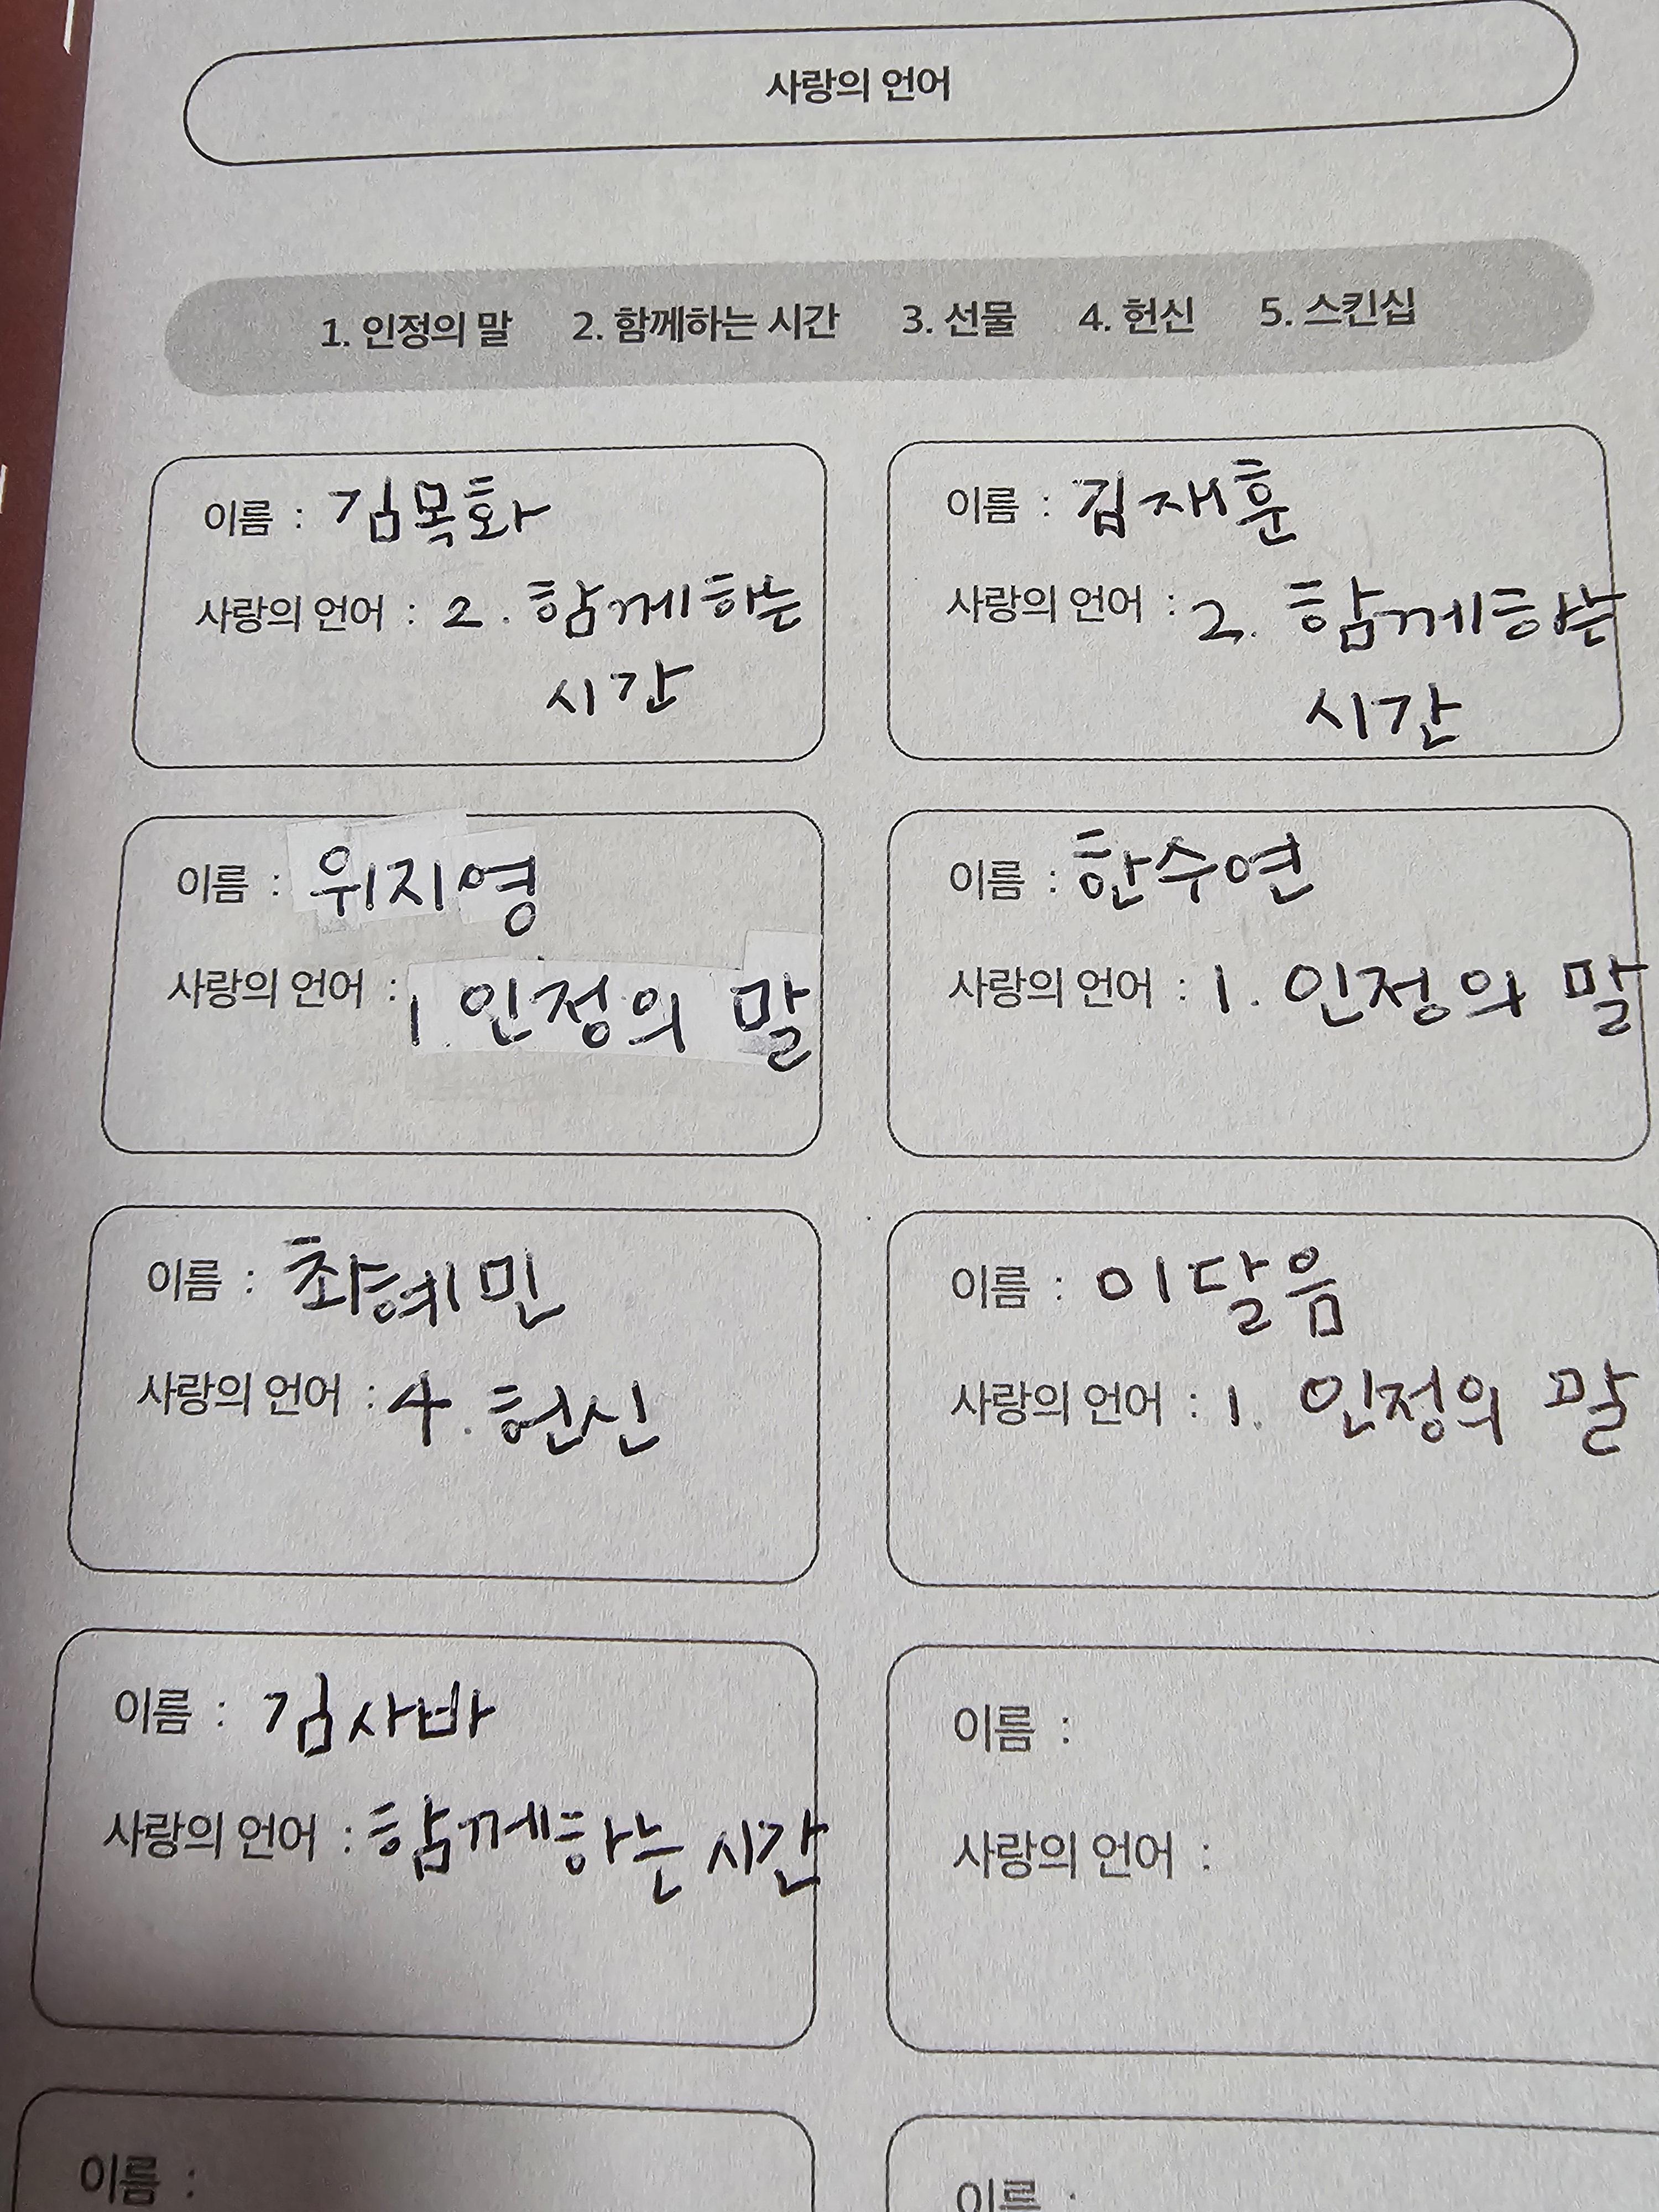 사랑의 언어
1. 인정의 말 2. 함께하는 시간 3. 선물 4. 헌신 5. 스킨십
이름 : 김목화
사랑의 언어 : 2. 함께하는
시간
이름 : 김재훈
사랑의 언어 : 2. 함께하는
시간
이름 : 위지영
사랑의 언어 : 1. 인정의 말
이름 : 한수연
사랑의 언어 : 1. 인정의 말
이름 : 최혜민
사랑의 언어 : 4. 헌신
이름 : 이달음
사랑의 언어 : 1. 인정의 말
이름 : 김사바
사랑의 언어 : 함께하는 시간
이름 :
사랑의 언어 :
이름 :
이름 :